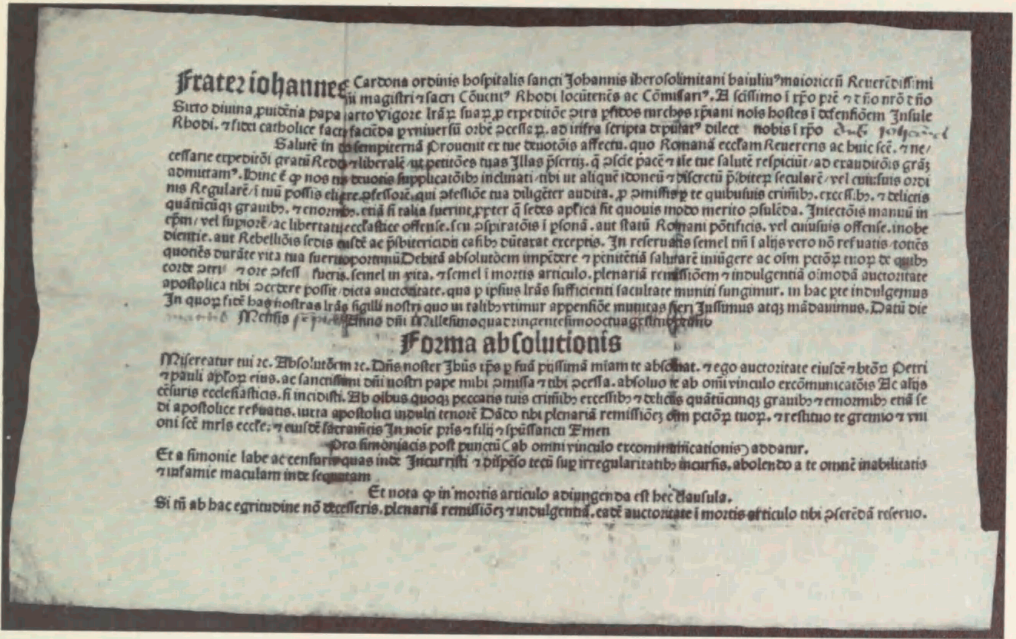 Frater iohannes Cardona ordinis hospitalis sancti Johannis iherosolimitani baiuliuꝰ maioriceñ Reverēdissimi
magistri ⁊ sacri Cōuentꝰ Rhodi locūtenēs ac Cōmissariꝰ. A scissimo ī xp̄o pr̄e ⁊ dño nr̄o dño
Sixto divina ꝓuidētia papa Vigore lr̄aꝝ suaꝝ ꝓ expeditōe ꝯtra ꝑfidos turchos xp̄iani nois hostes ī defensiōem Insule
Rhodi, ⁊ fidei catholice facta faciēda ꝑ vniuersū orbē ꝯcessaꝝ, ad infra scripta deputatꝰ dilect nobis ī xp̄o
Salutē in sempiternā Prouenit ex tue deuotōis affectu, quo Romanā eccl̄am Reuereris ac huic scē. ⁊ ne/
cessarie expeditōi gratū Reddis ⁊ liberalē, ut petitōes tuas Illas ꝑsertī, q̄ ꝯscie pacē ⁊ aīe tue salutē respiciūt, ad exauditōis grāꝫ
admittamꝰ. Hinc ē ꝙ nos tuis deuotis supplicatōibꝰ inclinati, tibi ut aliquē idoneū ⁊ discretū p̄sbiteꝝ secularē, vel cuiusuis ordi
nis Regularē, ī tuū possis eligere ꝯfessorē, qui ꝯfessiōe tua diligēter audita, ꝓ ꝯmissis ꝑ te quibusuis crimībꝫ, excess.bꝫ, ⁊ delictis
quātūcūqꝫ grauibꝫ, ⁊ enormibꝫ, etiā si talia fuerint, ꝓpter q̄ sedes aplīca sit quouis modo merito ꝯsulēda. Iniectōis manuū in
ep̄m, vel supiorē, ac libertatis eccl̄astice offense, seu ꝯspiratōis ī ꝑsonā, aut statū Romani pōtificis, vel cuiusuis offense, inobe
dientie, aut Rebelliōis sedis eiusdē ac p̄sbitericidii casibꝫ dūtaxat exceptis. In reseruatis semel tm̄ ī alijs vero nō reẜuatis, totiēs
quotiēs durāte vita tua fuerit oportunū Debitā absolutōem impēdere ⁊ penitētiā salutarē iniūgere ac oīm pctōꝝ tuoꝝ de quibꝫ
corde ꝯtrit ⁊ ore ꝯfess fueris, semel in vita, ⁊ semel ī mortis articulo, plenariā remissiōem ⁊ indulgentiā oīmodā auctoritate
apostolica tibi ꝯcedere possit, dicta auctoritate, qua ꝑ ipsius lr̄as sufficienti facultate muniti fungimur, in hac ꝑte indulgemus
In quoꝝ fidē has nostras lr̄as sigilli nostri quo in talibꝫ vtimur appensiōe munitas fieri Iussimus atqꝫ mādauimus. Datū die
Mensis Anno dñi Millesimo quadringentesimo octuagesimo
Forma absolutionis
Misereatur tui ⁊c. Absolutōem ⁊c. Dñs noster Jhūs xp̄s ꝑ suā piissimā miam te absoluat, ⁊ ego auctoritate eiusdē ⁊ btōꝝ Petri
⁊ pauli aplōꝝ eius, ac sanctissimi dñi nostri pape mihi ꝯmissa ⁊ tibi ꝯcessa, absoluo te ab om̄i vinculo excōmunicatōis Ac alijs
cēsuris ecclesiasticis, si incidisti. Ab oībus quoqꝫ peccatis tuis crimībꝫ excessibꝫ ⁊ delictis quātūcunqꝫ grauibꝫ ⁊ enormibꝫ etiā se
di apostolice reẜuatis, iuxta apostolici indulti tenorē Dādo tibi plenariā remissiōeꝫ oīm pctōꝝ tuoꝝ, ⁊ restituo te gremio ⁊ vni
oni scē mr̄is eccl̄e, ⁊ eiusdē sacramētis In noīe pris ⁊ filij ⁊ spūssancti Amen
Pro simoniacis post punctū (ab omni vinculo excommunicationis) addatur.
Et a simonie labe ac censuris quas inde Incurristi ⁊ dispēso tecū suꝑ irregularitatibꝫ incursis, abolendo a te omnē inabilitatis
⁊ infamie maculam inde sequutam
Et nota ꝙ in mortis articulo adiungenda est hec clausula.
Si tn̄ ab hac egritudine nō decesseris, plenariā remissiōeꝫ ⁊ indulgentiā, eadē auctoritate ī mortis articulo tibi ꝯferēdā reseruo.